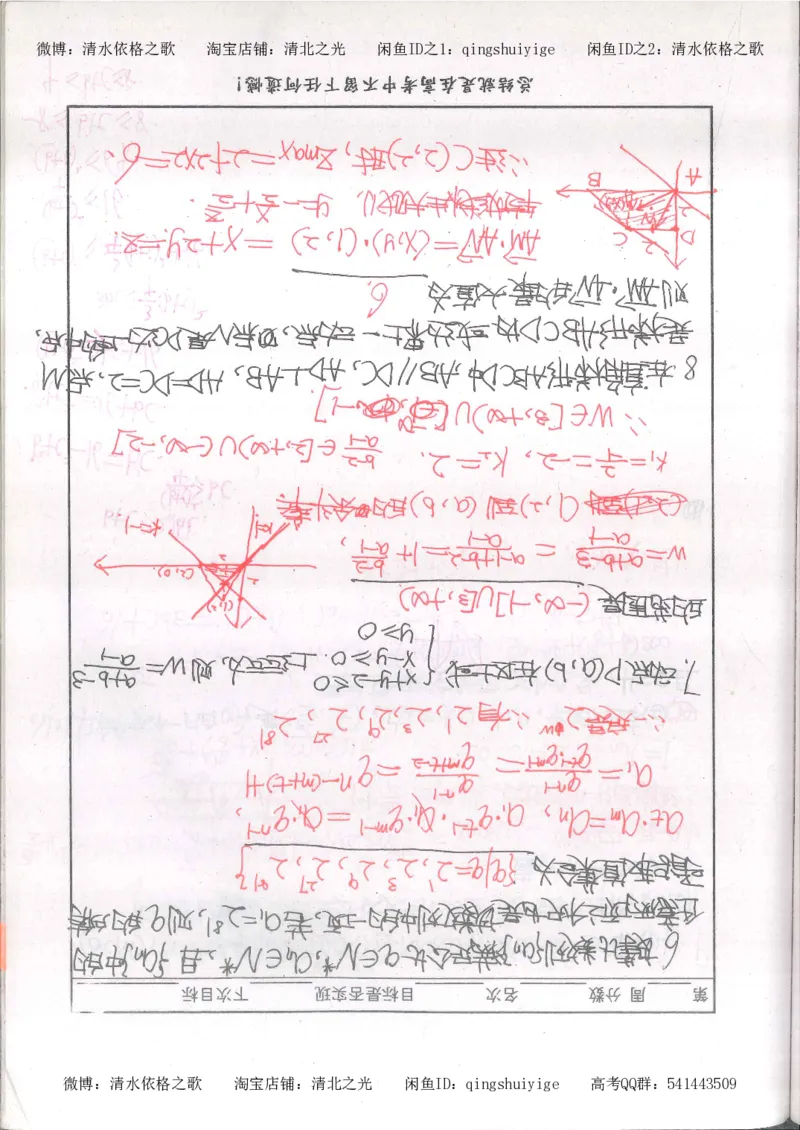 微博：清水依格之歌 淘宝店铺：清北之光 闲鱼ID之1：qingshuiyige 闲鱼ID之2：清水依格之歌
第 周 分数 名次 目标是否实现 下次目标
6 设等比数列{an}满足公比q∈N*, an∈N*, 且{an}中的
任意两项之积也是该数列中的一项, 若a1=2^81, 则q的所有
可能取值集合为 {q|q=2^1, 2^3, 2^9, 2^27, 2^81}
at·am=an, a1·q^t-1·a1·q^m-1=a1·q^n-1,
a1=q^n-1/q^t-1·q^m-1=q^n-1/q^m+t-2=q^n-(m+t)+1
∴有2^1, 2^3, 2^9, 2^27, 2^81
7. 动点P(a,b)在区域{x+y-2≤0 x-y≥0 y≥0 上运动, 则w=a+b-3/a-1
的范围 (-∞,-1]∪[3,+∞)
w=a+b-3/a-1=a-1+b-2/a-1=1+b-2/a-1,
(1,2)到(a,b)的斜率.
k1=-2, k2=2. b-2/a-1∈[2,+∞)∪(-∞,-2]
∴w∈[3,+∞)∪(-∞,-1].
8 在直角梯形ABCD中, AB∥DC, AD⊥AB, AD=DC=2, 点M
是梯形ABCD内或边界上一动点, 点N是DC边上的中点,
则AM·AN的最大值为 6.
AM·AN=(x,y)·(1,2)=x+2y=z.
y=-x/2+z/2.
∴在C(2,2)时, Zmax=2+2×2=6.
总结就是在高考中不留下任何遗憾!
微博：清水依格之歌 淘宝店铺：清北之光 闲鱼ID：qingshuiyige 高考QQ群：541443509